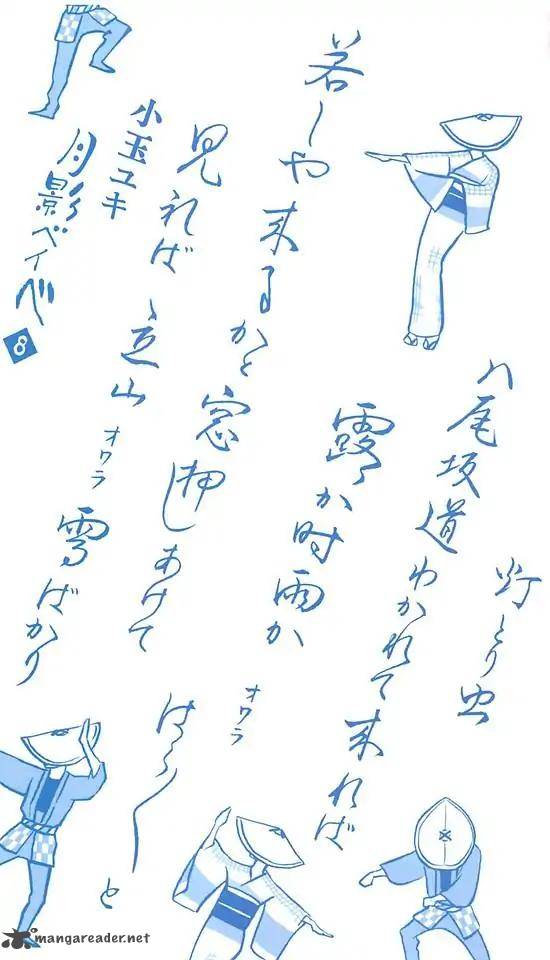 灯とり虫
八尾坂道わかれて来れば
露か時雨か
オワラ
はらはらと
若しや来るかと窓押しあけて
見れば立山
オワラ
雪ばかり
小玉ユキ
月影ベイベ
8
mangareader.net